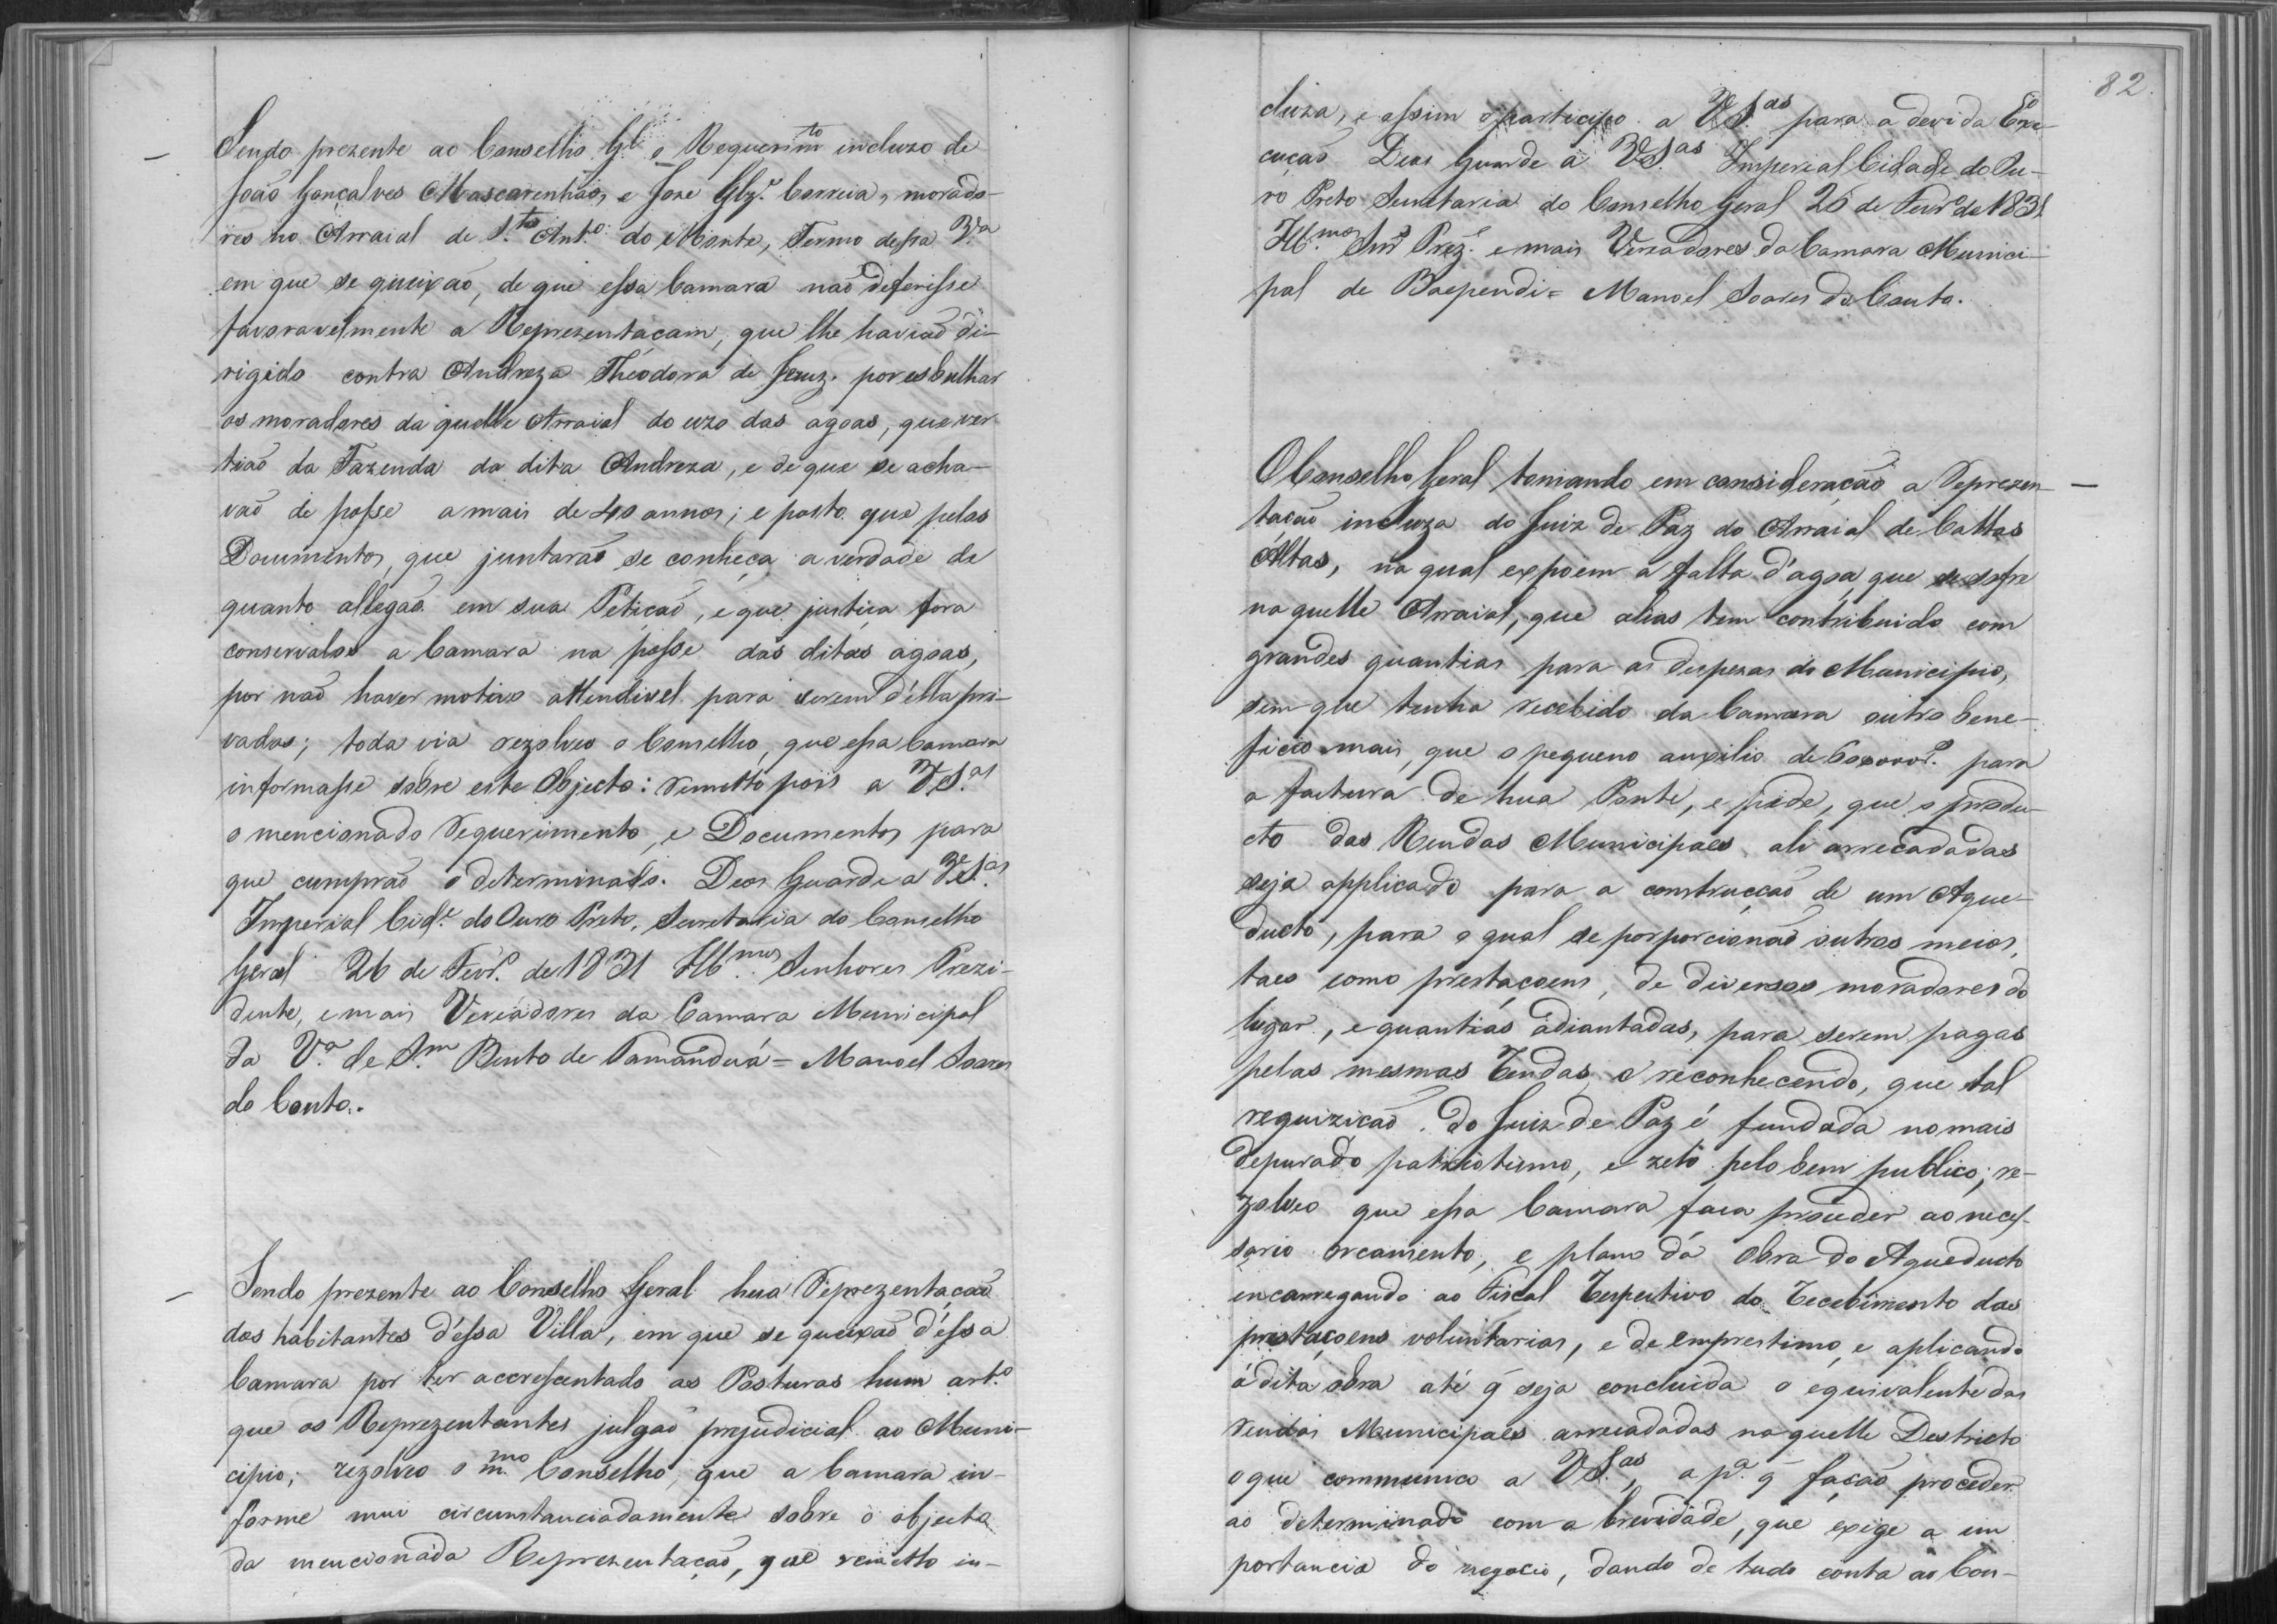 Sendo prezente ao Conselho G.l o Requerim.to incluzo de
João Gonçalves Mascarenhas, e Joze Glz.e Correia, morado-
res no Arraial de S.to Ant.o do Monte, Termo dessa V.a
em que se queixão, de que essa Camara não deferisse
favoravelmente a Reprezentaçam, que lhe havião di-
rigido contra Andreza Theodora de Jezuz. por esbulhar
os moradores da quelle Arraial do uzo das agoas, que ver-
tião da Fazenda da dita Andreza, e de que se acha-
vão de posse a mais de 40 annos; e posto que pelos
Documentos, que juntarão se conheça a verdade de
quanto allegão em sua Petição, e que justiça fora
conservalos a Camara na posse das ditas agoas,
por não haver motivo attendivel para serem d'ella pri-
vados; toda via rezolveo o Conselho, que essa Camara
informasse sobre este Objecto: remetto pois a VS.as
o mencionado requerimento, e Documentos para
que cumprão o determinado. Deos Guarde a VS.as
Imperial Cid.e do Ouro Preto, Secretaria do Conselho
Geral 26 de Fevr.o de 1831 Ill.mos Senhores Prezi-
dente, e mais Vereadores da Camara Municipal
da V.a de S.m Bento de Tamanduá = Manoel Soares
do Couto.
Sendo prezente ao Conselho Geral hua Reprezentação
dos habitantes d'essa Villa, em que se queixão d'essa
Camara por ter accrescentado as Posturas hum art.o
que os Reprezentantes julgão prejudicial ao Muni-
cipio; rezolveo o m.mo Conselho, que a Camara in-
forme mui circunstanciadamente sobre o objecto
da mencionada Reprezentação, que remetto in-
82.
cluza, e assim o participo a VS.as para a devida Exe-
cução Deos Guarde a VS.as Imperial Cidade do Ou-
ro Preto Secretaria do Conselho Geral 26 de Fevr.o de 1831
Ill.mos Snr.s Prez.e e mais Vereadores da Camara Munici-
pal de Baependi = Manoel Soares do Couto.
O Conselho Geral tomando em consideração a Reprezen-
tação incluza do Juiz de Paz do Arraial de Cattas
Altas, na qual expoem a falta d'agoa, que se sofre
na quelle Arraial, que alias tem contribuido com
grandes quantias para as despezas do Municipio,
sem que tenha recebido da Camara outro bene-
ficio mais, que o pequeno auxilio de para
a factura de hua Ponte, e pede, que o produ-
cto das Rendas Municipaes ali arrecadadas
seja applicado para a construcção de um Aque-
ducto, para o qual se porporcionão outros meios,
taes como prestaçoens, de diversos moradores do
lugar, e quantias adiantadas, para serem pagas
pelas mesmas Rendas, e reconhecendo, que tal
requizição do Juiz de Paz é fundada no mais
depurado patriotismo, e zelo pelo bem publico; re-
zolveo que essa Camara faça proceder ao neces-
sario orcamento, e plano da obra do Aqueducto
encarregando ao Fiscal Respectivo do Recebimento das
prestaçoens voluntarias, e de emprestimo, e aplicando
á dita obra até q̃ seja concluida o equivalente das
rendas Municipaes arrecadadas na quelle Destricto
o que communico a VS.as, a p.a q̃ fação proceder
ao determinado com a brevidade, que exige a im
portancia do negocio, dando de tudo conta ao Con-